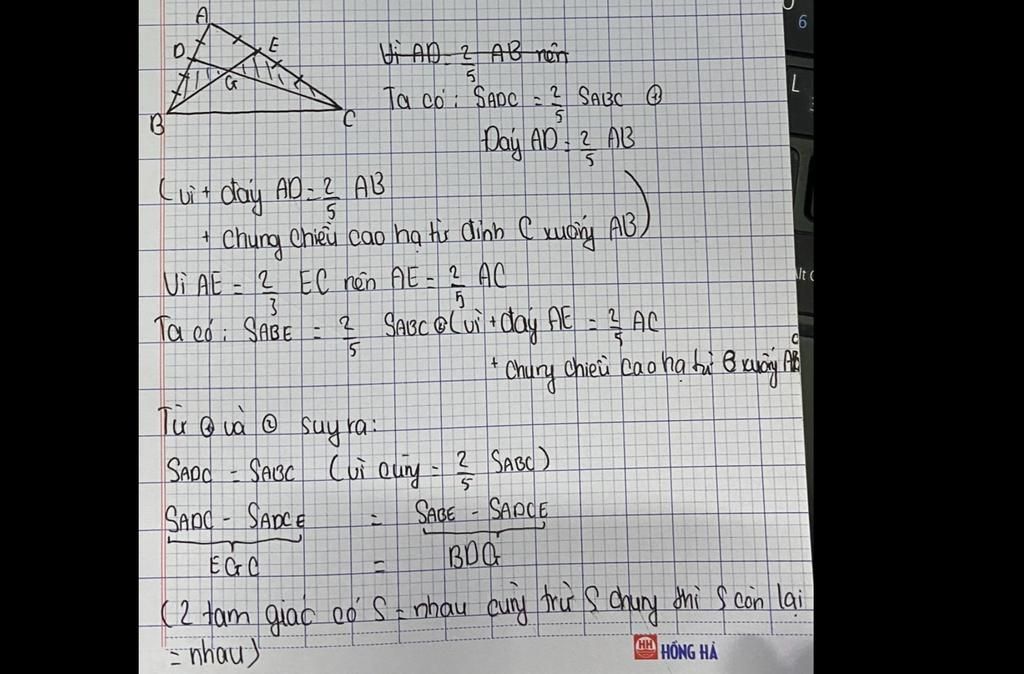 A
D
E
G
B
C
Vì AD = 2/5 AB nên
Ta có: SADC = 2/5 SABC ①
Đáy AD = 2/5 AB
(vì + đáy AD = 2/5 AB
+ Chung chiều cao hạ từ đỉnh C xuống AB)
Vì AE = 2/3 EC nên AE = 2/5 AC
Ta có: SABE = 2/5 SABC ② (vì + đáy AE = 2/5 AC
+ Chung chiều cao hạ từ B xuống AC
Từ ① và ② suy ra:
SADC = SABC (vì cùng = 2/5 SABC)
SADC - SADCE = SABE - SADCE
EGC = BDG
(2 tam giác có S = nhau cùng trừ S chung thì S còn lại
= nhau)
HH HỒNG HÀ
6
L